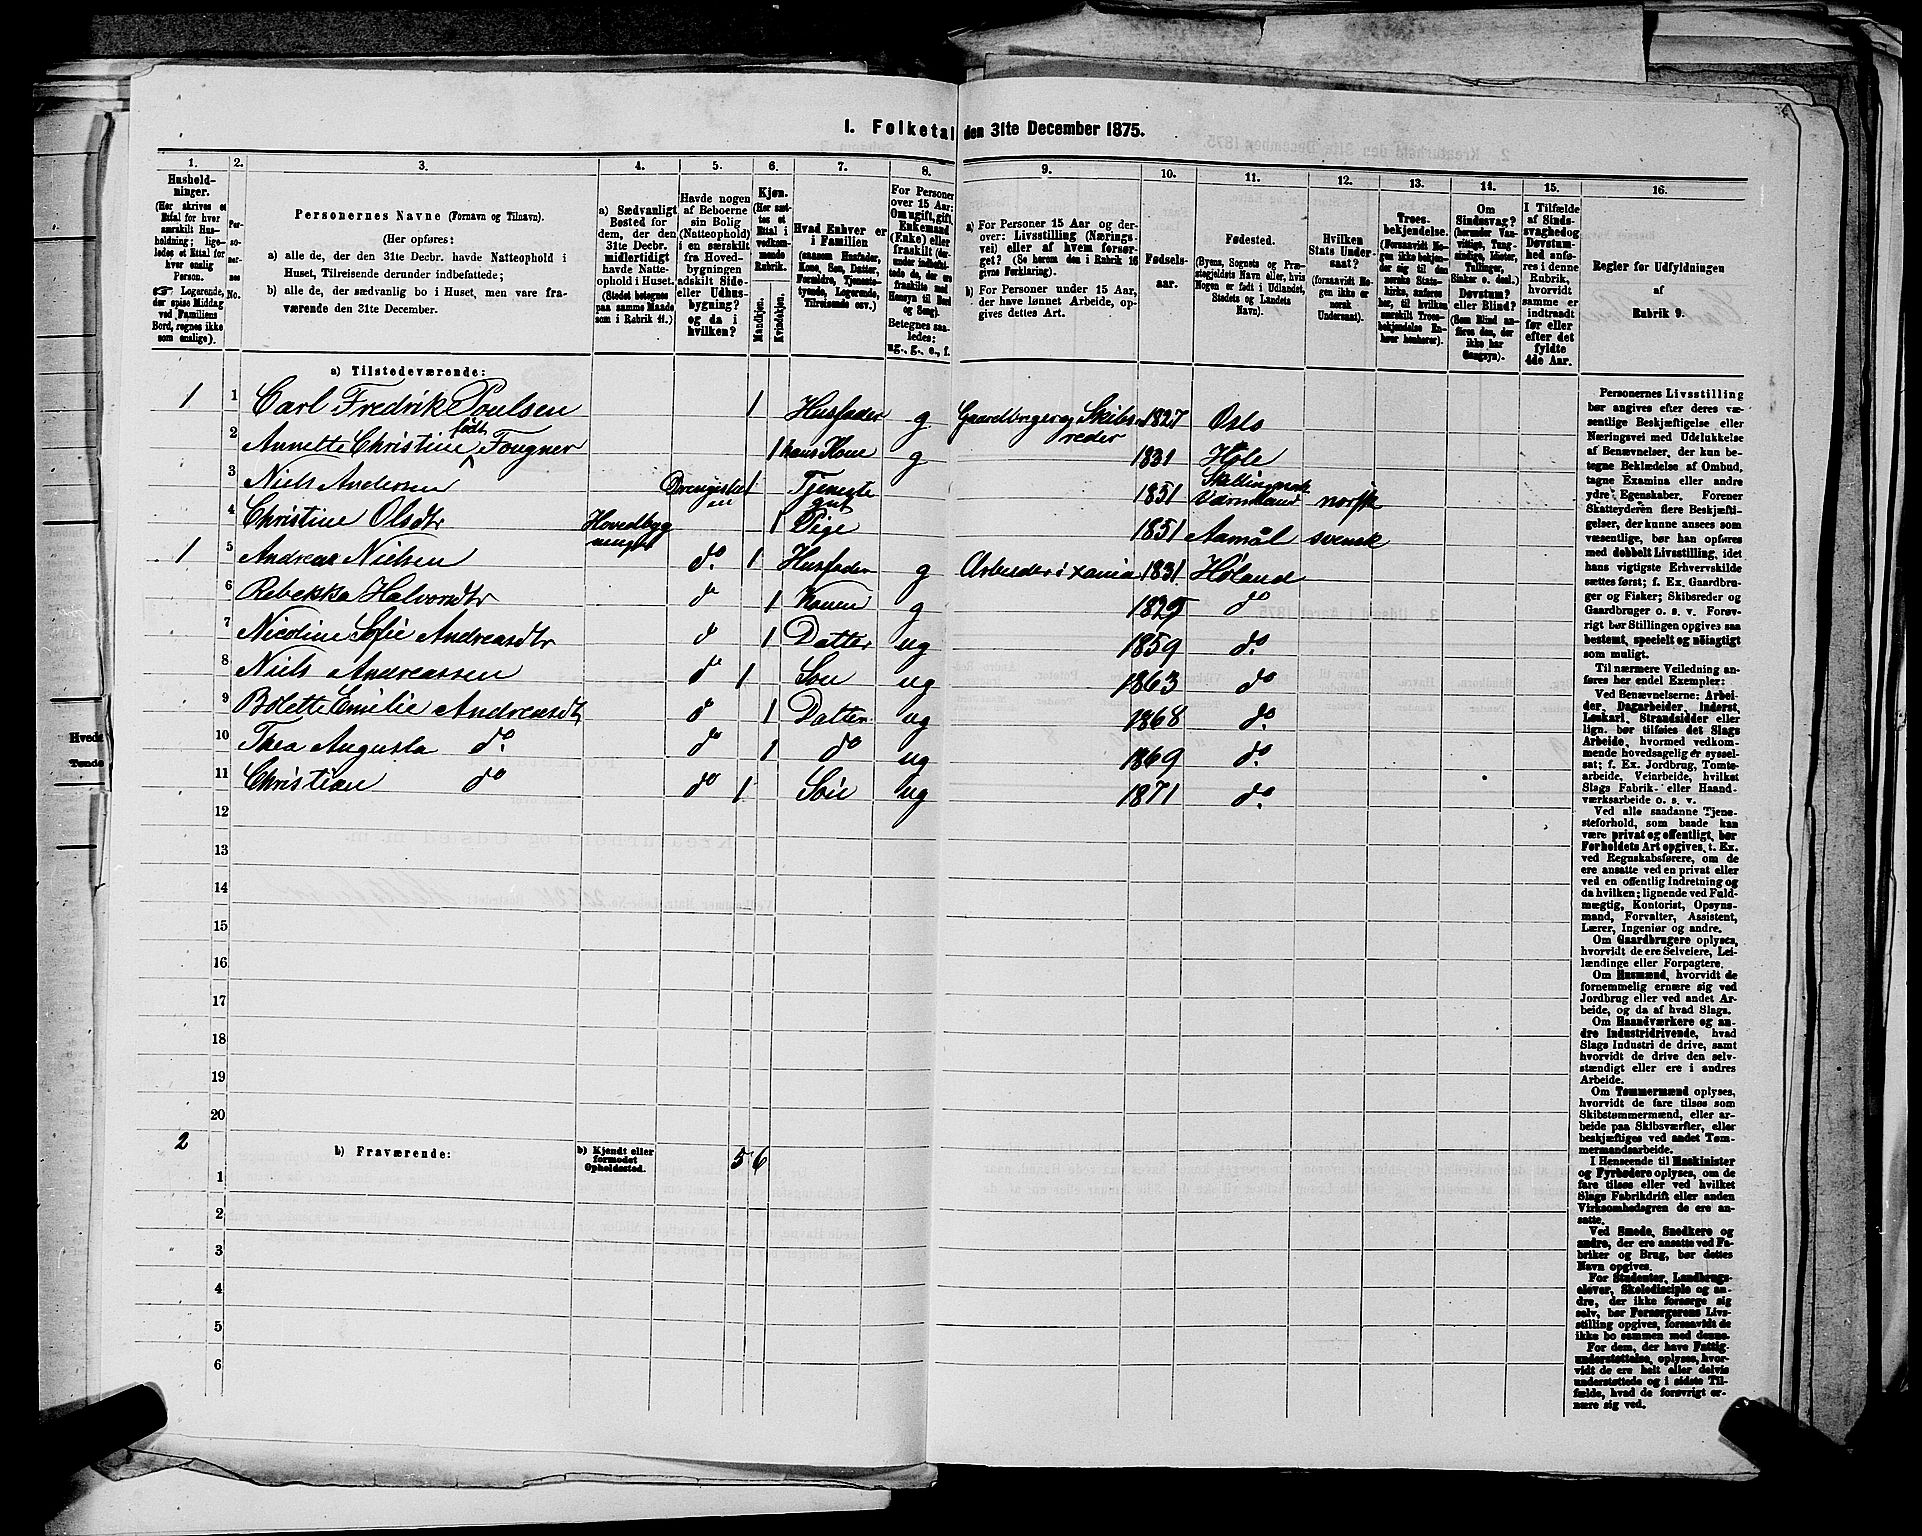 1. Folketal den 31te December 1875.
1. 2. 3. 4. 5. 6. 7. 8. 9. 10. 11. 12. 13. 14. 15. 16.
Husholdninger.
(Her skrives et Ettal for hver særskilt Husholdning; ligeledes et Ettal for hver enslig Person.
Logerende, der spise Middag ved Familiens Bord, regnes ikke som enslige).
Personernes No.
Personernes Navne (Fornavn og Tilnavn).
(Her opføres:
a) alle de, der den 31te Decbr. havde Natteophold i Huset, Tilreisende derunder indbefattede;
b) alle de, der sædvanlig bo i Huset, men vare fraværende den 31te December.
a) Sædvanligt Bosted for dem, der den 31te Decbr. midlertidigt havde Natteophold i Huset.
(Stedet betegnes paa samme Maade som i Rubrik 11.)
Havde nogen af Beboerne sin Bolig (Natteophold) i en særskilt fra Hovedbygningen adskilt Side- eller Udhusbygning? og da i hvilken?
Kjøn.
(Her sættes et Ettal i vedkommende Rubrik.
Mandkjøn.
Kvindekjøn.
Hvad Enhver er i Familien
(saasom Husfader, Kone, Søn, Datter, Forældre, Tjenestetyende, Logerende, Tilreisende osv.)
For Personer over 15 Aar: Om ugift, gift, Enkemand (Enke) eller fraskilt
Betegnes saaledes: ug., g., e., f.
a) For Personer 15 Aar og derover: Livsstilling (Næringsvei) eller af hvem forsørget? (Se herom den i Rubrik 16 givne Forklaring).
b) For Personer under 15 Aar, der have lønnet Arbeide, opgives dettes Art.
Fødselsaar.
Fødested.
(Byens, Sognets og Præstegjeldets Navn eller, hvis Nogen er født i Udlandet, Stedets og Landets Navn).
Hvilken Stats Undersaat?
(forsaavidt Nogen ikke er norsk Undersaat).
Troesbekjendelse.
Om Sindssvag?
Døvstum? eller Blind?
(Som Blind anføres den, der ikke har Gangsyn).
I Tilfælde af Sindssvaghed og Døvstumhed anføres i denne Rubrik, hvorvidt samme er indtraadt før eller efter det fyldte 4de Aar.
Regler for Udfyldningen af Rubrik 9.
a) Tilstedeværende:
1 1 Carl Fredrik Poulsen 1 Husfader g Gaardbruger og Skibsreder 1827 Oslo
2 Annette Christine født Fougner 1 hans Kone g 1831 Hole
3 Niels Andersen 1 1851 Värmland norsk
4 Christine Olsdtr 1 Pige 1851 Aamål svensk
1 5 Andreas Nielsen do. 1 Husfader g Arbeider i Xania 1831 Høland
6 Rebekka Halvorsdtr do 1 Konen g 1825 do
7 Nicoline Sofie Andreasdtr do 1 Datter ug 1859 do.
8 Niels Andreassen do 1 Søn ug 1863 do
9 Bolette Emilie Andreasdtr do 1 Datter ug 1868 do.
10 Thea Augusta do. do 1 do ug 1869 do.
11 Christian do do 1 Søn ug 1871 do.
12
13
14
15
16
17
18
19
20
2 b) Fraværende: b) Kjendt eller formodet Opholdssted. 5 6
1
2
3
4
5
6
Personernes Livsstilling bør angives efter deres væsentlige Beskjæftigelse eller Næringsvei med Udelukkelse af Benævnelser, der kun betegne Beklædelse af Ombud, tagne Examina eller andre ydre Egenskaber. Forener Skatteyderen flere Beskjæftigelser, der kunne ansees som væsentlige, bør han opføres med dobbelt Livsstilling, idet hans vigtigste Erhvervskilde sættes først; f. Ex. Gaardbruger og Fisker; Skibsreder og Gaardbruger o. s. v. Forøvrigt bør Stillingen opgives saa bestemt, specielt og nøiagtigt som muligt.
Til nærmere Veiledning anføres her endel Exempler:
Ved Benævnelserne: Arbeider, Dagarbeider, Inderst, Løskarl, Strandsidder eller lign. bør tilføies det Slags Arbeide, hvormed vedkommende hovedsagelig er sysselsat; f. Ex. Jordbrug, Tomtearbeide, Veiarbeide, hvilket Slags Fabrik- eller Haandværksarbeide o. s. v.
Ved alle saadanne Tjenesteforhold, som baade kan være privat og offentligt, bør Forholdets Art opgives, t. Ex. ved Regnskabsførere, om de ere ansatte ved en privat eller ved en offentlig Indretning og da hvilken; lignende ved Fuldmægtig, Kontorist, Opsynsmand, Forvalter, Assistent, Lærer, Ingeniør og andre.
Om Gaardbrugere oplyses, hvorvidt de ere Selveiere, Leilændinge eller Forpagtere.
Om Husmænd, hvorvidt de fornemmelig ernære sig ved Jordbrug eller ved andet Arbeide, og da af hvad Slags.
Om Haandværkere og andre Industridrivende, hvad Slags Industri de drive, samt hvorvidt de drive den selvstændigt eller ere i andres Arbeide.
Om Tømmermænd oplyses, hvorvidt de fare tilsøs som Skibstømmermænd, eller arbeide paa Skibsværfter, eller beskjæftiges ved andet Tømmermandsarbeide.
I Henseende til Maskinister og Fyrbødere oplyses, om de fare tilsøs eller ved hvilket Slags Fabrikdrift eller anden Virksomhedsgren de ere ansatte.
Ved Smede, Snedkere og andre, der ere ansatte ved Fabriker og Brug, bør dettes Navn opgives.
For Studenter, Landbrugselever, Skoledisciple og andre, der ikke forsørge sig selv, bør Forsørgerens Livsstilling opgives, forsaavidt de ikke bo sammen med denne.
For dem, der have Fattigunderstøttelse, oplyses, hvorvidt de ere helt eller delvis understøttede og i sidste Tilfælde, hvad de forøvrigt ernære sig ved.
Hvede
Tønde